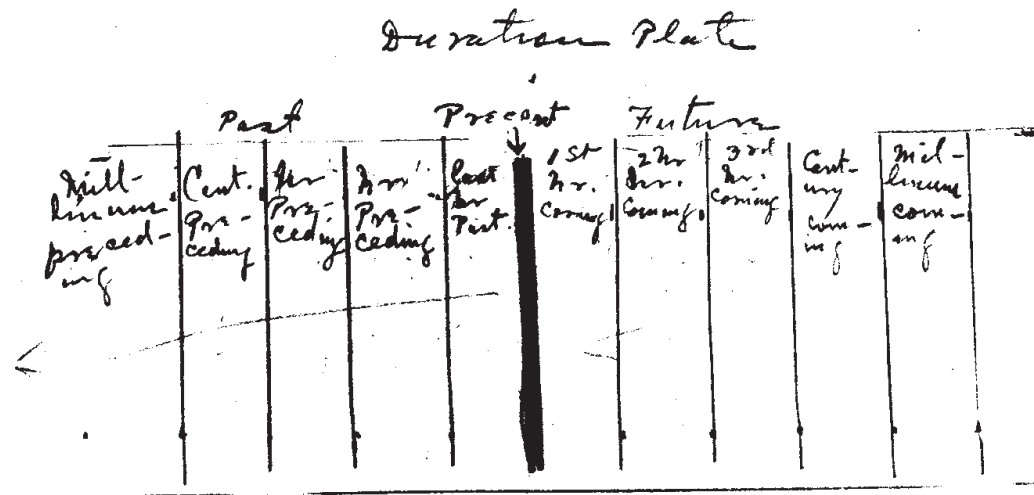 Duration Plate
Past
Present
Future
Mill-
lenium
preced-
ing
Cent.
Pre-
ceding
Hr
Pre-
ceding
Hr
Pre-
ceding
Last
Hr
Past.
1st
Hr.
Coming
2nr
Hr.
Coming.
3rd
Hr.
Coming
Cent-
ury
com-
ing
Mil-
lenium
com-
ing